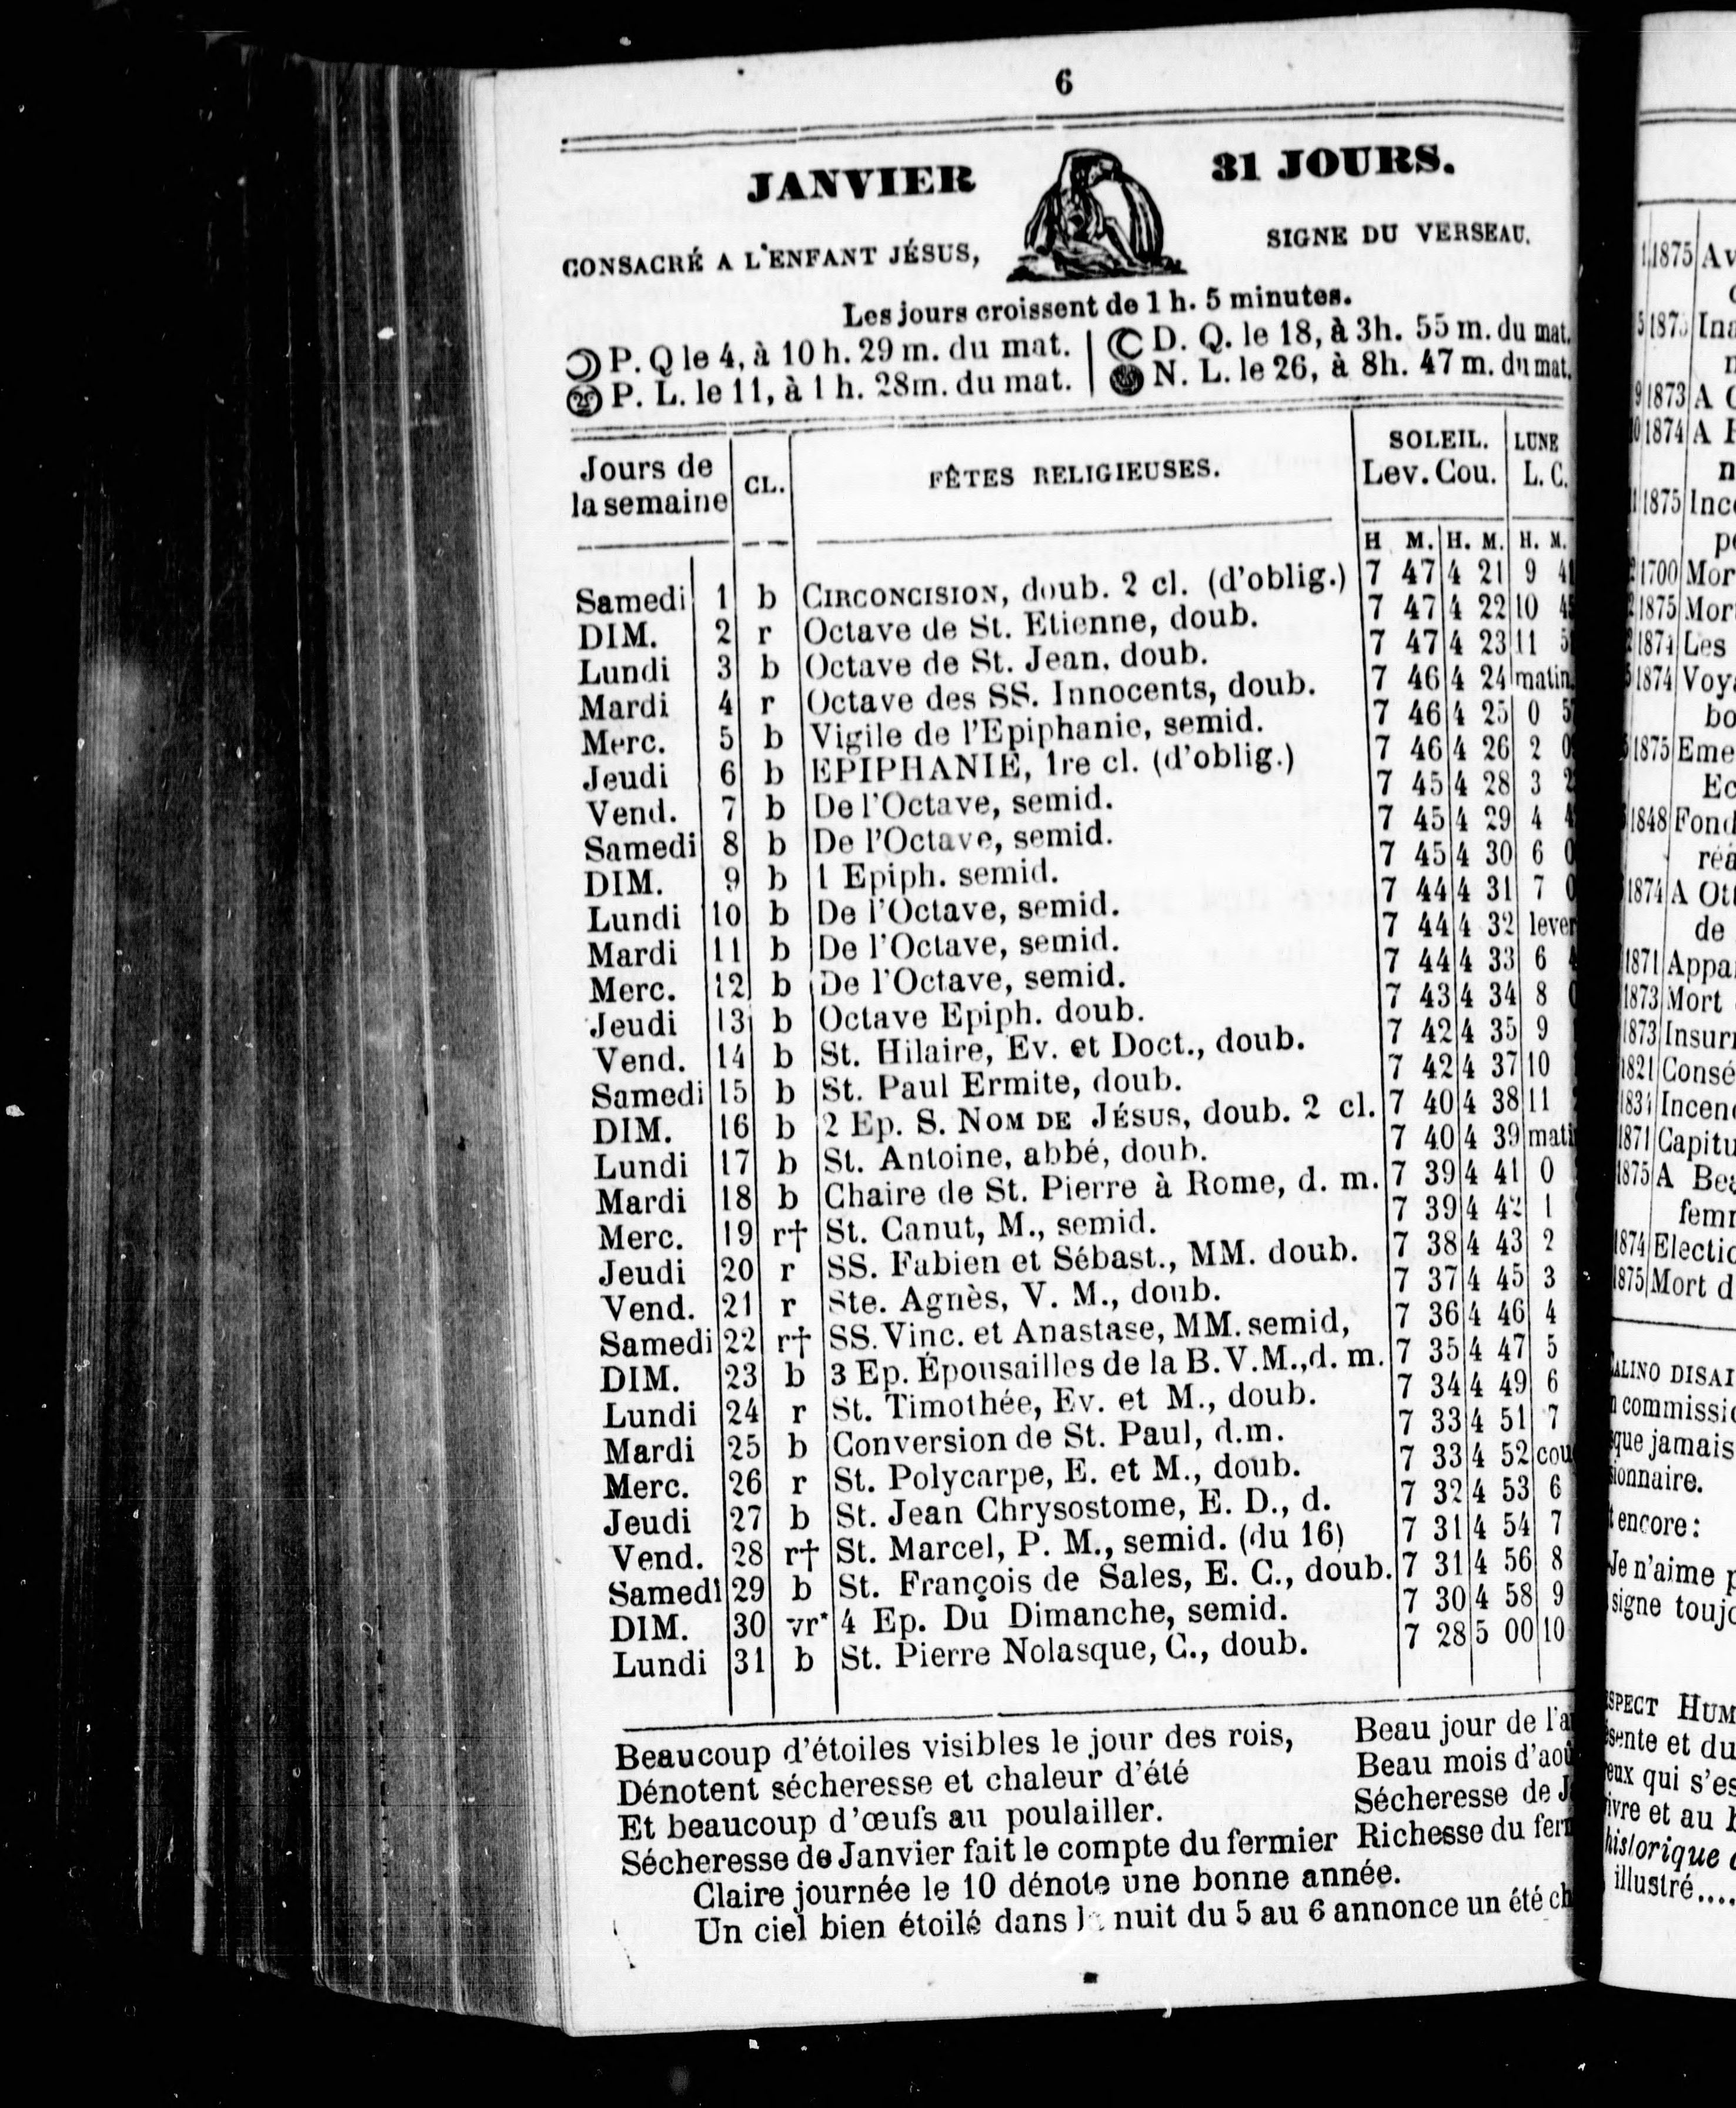 6
JANVIER 31 JOURS.
CONSACRÉ A L'ENFANT JÉSUS, SIGNE DU VERSEAU.
Les jours croissent de 1 h. 5 minutes.
P. Q le 4, à 10 h. 29 m. du mat. D. Q. le 18, à 3h. 55 m. du mat.
P. L. le 11, à 1 h. 28m. du mat. N. L. le 26, à 8h. 47 m. du mat.
Jours de la semaine CL. FÊTES RELIGIEUSES. SOLEIL. Lev. Cou. LUNE L. C.
H M. H. M. H. M.
Samedi 1 b CIRCONCISION, doub. 2 cl. (d'oblig.) 7 47 4 21 9
DIM. 2 r Octave de St. Etienne, doub. 7 47 4 22 10
Lundi 3 b Octave de St. Jean, doub. 7 47 4 23 11
Mardi 4 r Octave des SS. Innocents, doub. 7 46 4 24 matin
Merc. 5 b Vigile de l'Epiphanie, semid. 7 46 4 25 0
Jeudi 6 b EPIPHANIE, 1re cl. (d'oblig.) 7 46 4 26 2
Vend. 7 b De l'Octave, semid. 7 45 4 28 3
Samedi 8 b De l'Octave, semid. 7 45 4 29 4
DIM. 9 b 1 Epiph. semid. 7 45 4 30 6
Lundi 10 b De l'Octave, semid. 7 44 4 31 7
Mardi 11 b De l'Octave, semid. 7 44 4 32 lever
Merc. 12 b De l'Octave, semid. 7 44 4 33 6
Jeudi 13 b Octave Epiph. doub. 7 43 4 34 8
Vend. 14 b St. Hilaire, Ev. et Doct., doub. 7 42 4 35 9
Samedi 15 b St. Paul Ermite, doub. 7 42 4 37 10
DIM. 16 b 2 Ep. S. NOM DE JÉSUS, doub. 2 cl. 7 40 4 38 11
Lundi 17 b St. Antoine, abbé, doub. 7 40 4 39 mati
Mardi 18 b Chaire de St. Pierre à Rome, d. m. 7 39 4 41 0
Merc. 19 r† St. Canut, M., semid. 7 39 4 42 1
Jeudi 20 r SS. Fabien et Sébast., MM. doub. 7 38 4 43 2
Vend. 21 r Ste. Agnès, V. M., doub. 7 37 4 45 3
Samedi 22 r† SS. Vinc. et Anastase, MM. semid, 7 36 4 46 4
DIM. 23 b 3 Ep. Épousailles de la B.V.M.,d. m. 7 35 4 47 5
Lundi 24 r St. Timothée, Ev. et M., doub. 7 34 4 49 6
Mardi 25 b Conversion de St. Paul, d.m. 7 33 4 51 7
Merc. 26 r St. Polycarpe, E. et M., doub. 7 33 4 52 cou
Jeudi 27 b St. Jean Chrysostome, E. D., d. 7 32 4 53 6
Vend. 28 r† St. Marcel, P. M., semid. (du 16) 7 31 4 54 7
Samedi 29 b St. François de Sales, E. C., doub. 7 31 4 56 8
DIM. 30 vr* 4 Ep. Du Dimanche, semid. 7 30 4 58 9
Lundi 31 b St. Pierre Nolasque, C., doub. 7 28 5 00 10
Beaucoup d'étoiles visibles le jour des rois, Beau jour de l'a
Dénotent sécheresse et chaleur d'été Beau mois d'aoû
Et beaucoup d'œufs au poulailler. Sécheresse de J
Sécheresse de Janvier fait le compte du fermier Richesse du fer
Claire journée le 10 dénote une bonne année.
Un ciel bien étoilé dans nuit du 5 au 6 annonce un été ch
1875 Av
Ina
1873 A
1874 A
1875 Ince
1700 Mor
1875 Mor
Les
1874 Voy
bo
1875 Eme
Ec
1848 Fond
réa
1874 A Ott
de
1871 Appa
1873 Mort
1873 Insur
1821 Consé
Incen
1871 Capitu
1875 A Bea
femm
1874 Electio
1875 Mort d
ALINO DISAI
commissio
que jamais
ionnaire.
encore:
Je n'aime p
signe toujo
SPECT HUM
sente et du
eux qui s'es
ivre et au
historique
illustré....